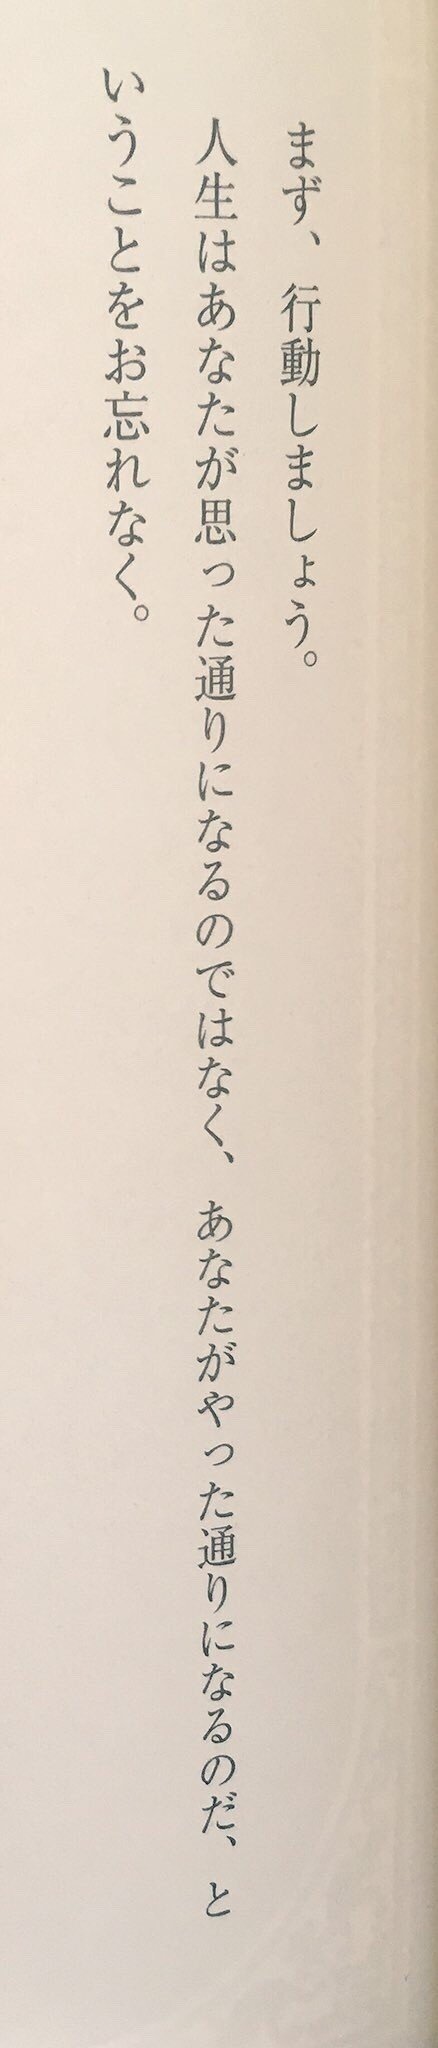 まず、行動しましょう。
人生はあなたが思った通りになるのではなく、あなたがやった通りになるのだ、と
いうことをお忘れなく。